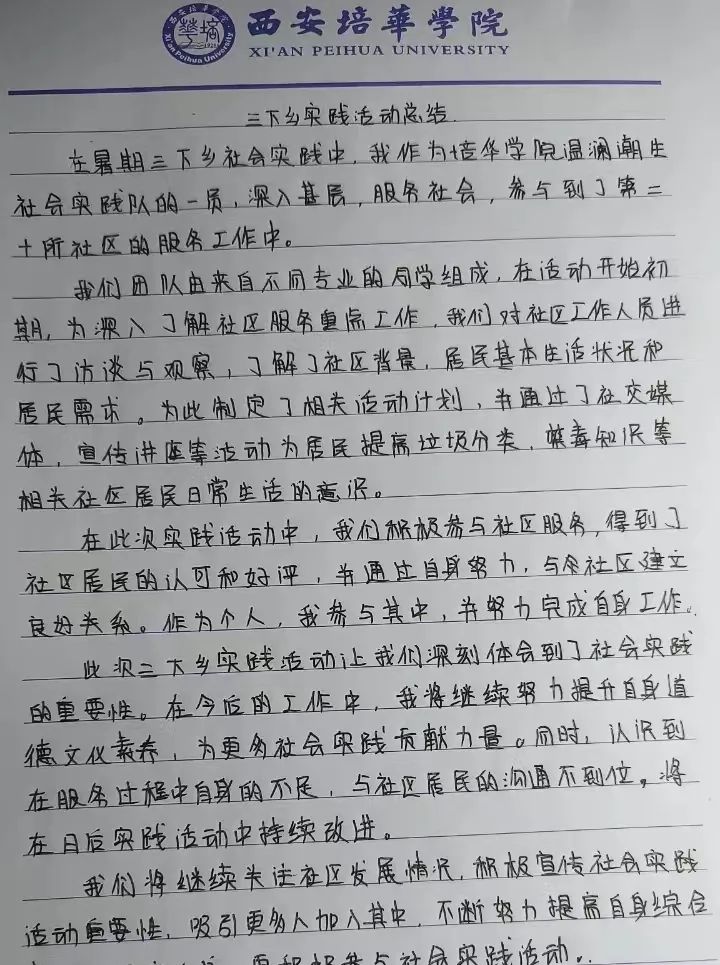 西安培華學院
XI'AN PEIHUA UNIVERSITY
西安培华学院
Xi'an Peihua University
三下乡实践活动总结.
在暑期三下乡社会实践中,我作为培华学院温澜潮生
社会实践队的一员,深入基层,服务社会,参与到了第二
十所社区的服务工作中。
我们团队由来自不同专业的同学组成,在活动开始初
期,为深入了解社区服务重点工作,我们对社区工作人员进
行了访谈与观察,了解了社区背景,居民基本生活状况和
居民需求。为此制定了相关活动计划,并通过了社交媒
体,宣传讲座等活动为居民提高垃圾分类,禁毒知识等
相关社区居民日常生活的意识。
在此次实践活动中,我们积极参与社区服务,得到了
社区居民的认可和好评,并通过自身努力,与余社区建立
良好关系。作为个人,我参与其中,并努力完成自身工作.
此次三下乡实践活动让我们深刻体会到了社会实践
的重要性。在今后的工作中,我将继续努力提升自身道
德文化素养,为更多社会实践贡献力量。同时,认识到
在服务过程中自身的不足,与社区居民的沟通不到位,将
在日后实践活动中持续改进。
我们将继续关注社区发展情况,积极宣传社会实践
活动重要性,吸引更多人加入其中,不断努力提高自身综合
更积极参与社会实践活动。